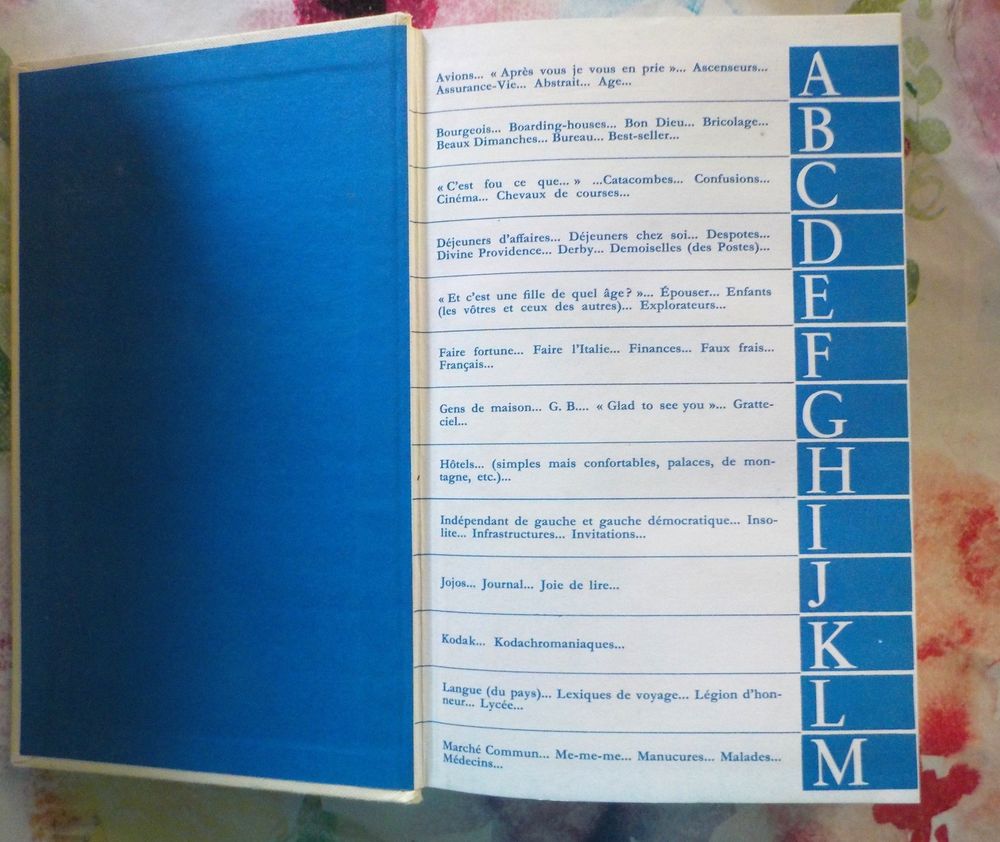 Avions... « Après vous je vous en prie »... Ascenseurs...
Assurance-Vie... Abstrait... Age...
A
Bourgeois... Boarding-houses... Bon Dieu... Bricolage...
Beaux Dimanches... Bureau... Best-seller...
B
« C'est fou ce que... » ...Catacombes... Confusions...
Cinéma... Chevaux de courses...
C
Déjeuners d'affaires... Déjeuners chez soi... Despotes...
Divine Providence... Derby... Demoiselles (des Postes)...
D
« Et c'est une fille de quel âge ? »... Épouser... Enfants
(les vôtres et ceux des autres)... Explorateurs...
E
Faire fortune... Faire l'Italie... Finances... Faux frais...
Français...
F
Gens de maison... G. B.... « Glad to see you »... Gratte-
ciel...
G
Hôtels... (simples mais confortables, palaces, de mon-
tagne, etc.)...
H
Indépendant de gauche et gauche démocratique... Inso-
lite... Infrastructures... Invitations...
I
Jojos... Journal... Joie de lire...
J
Kodak... Kodachromaniaques...
K
Langue (du pays)... Lexiques de voyage... Légion d'hon-
neur... Lycée...
L
Marché Commun... Me-me-me... Manucures... Malades...
Médecins...
M